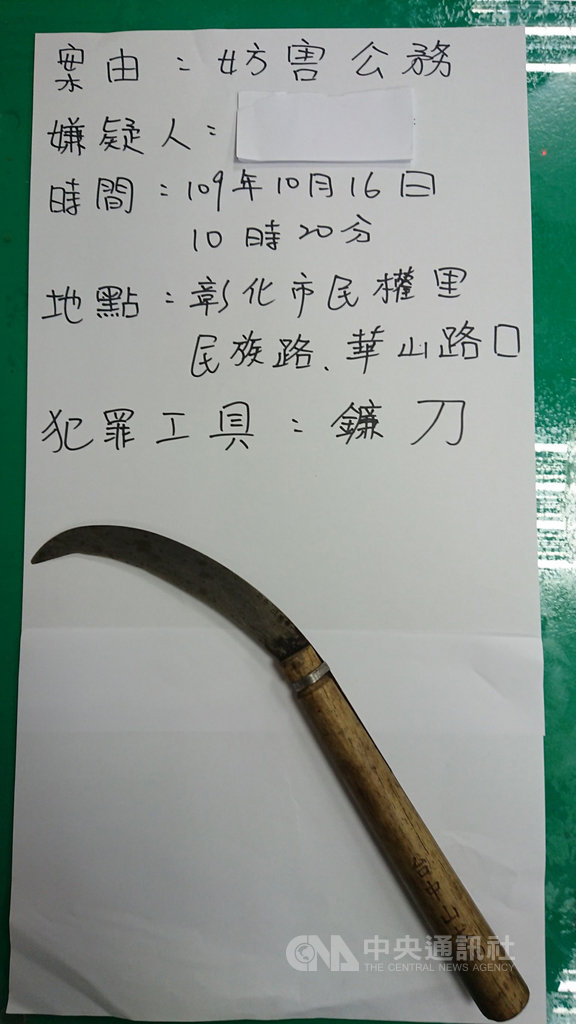 案由：妨害公務
嫌疑人：
時間：109年10月16日
10時20分
地點：彰化市民權里
民族路、華山路口
犯罪工具：鐮刀
台中
CNA 中央通訊社
THE CENTRAL NEWS AGENCY